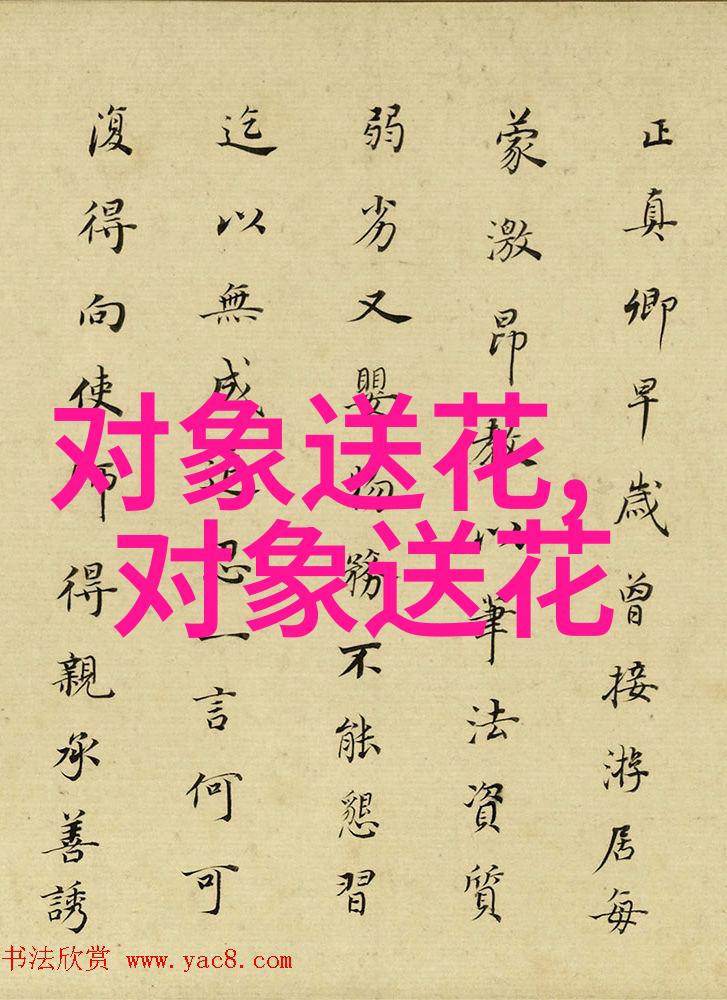 正真卿早歲曾接游居每
蒙激昂教以筆法資質
弱劣又嬰物務不能懇習
迄以無成追思一言何可
復得向使師得親承善誘
对象送花,
对象送花
书法欣赏 www.yac8.com